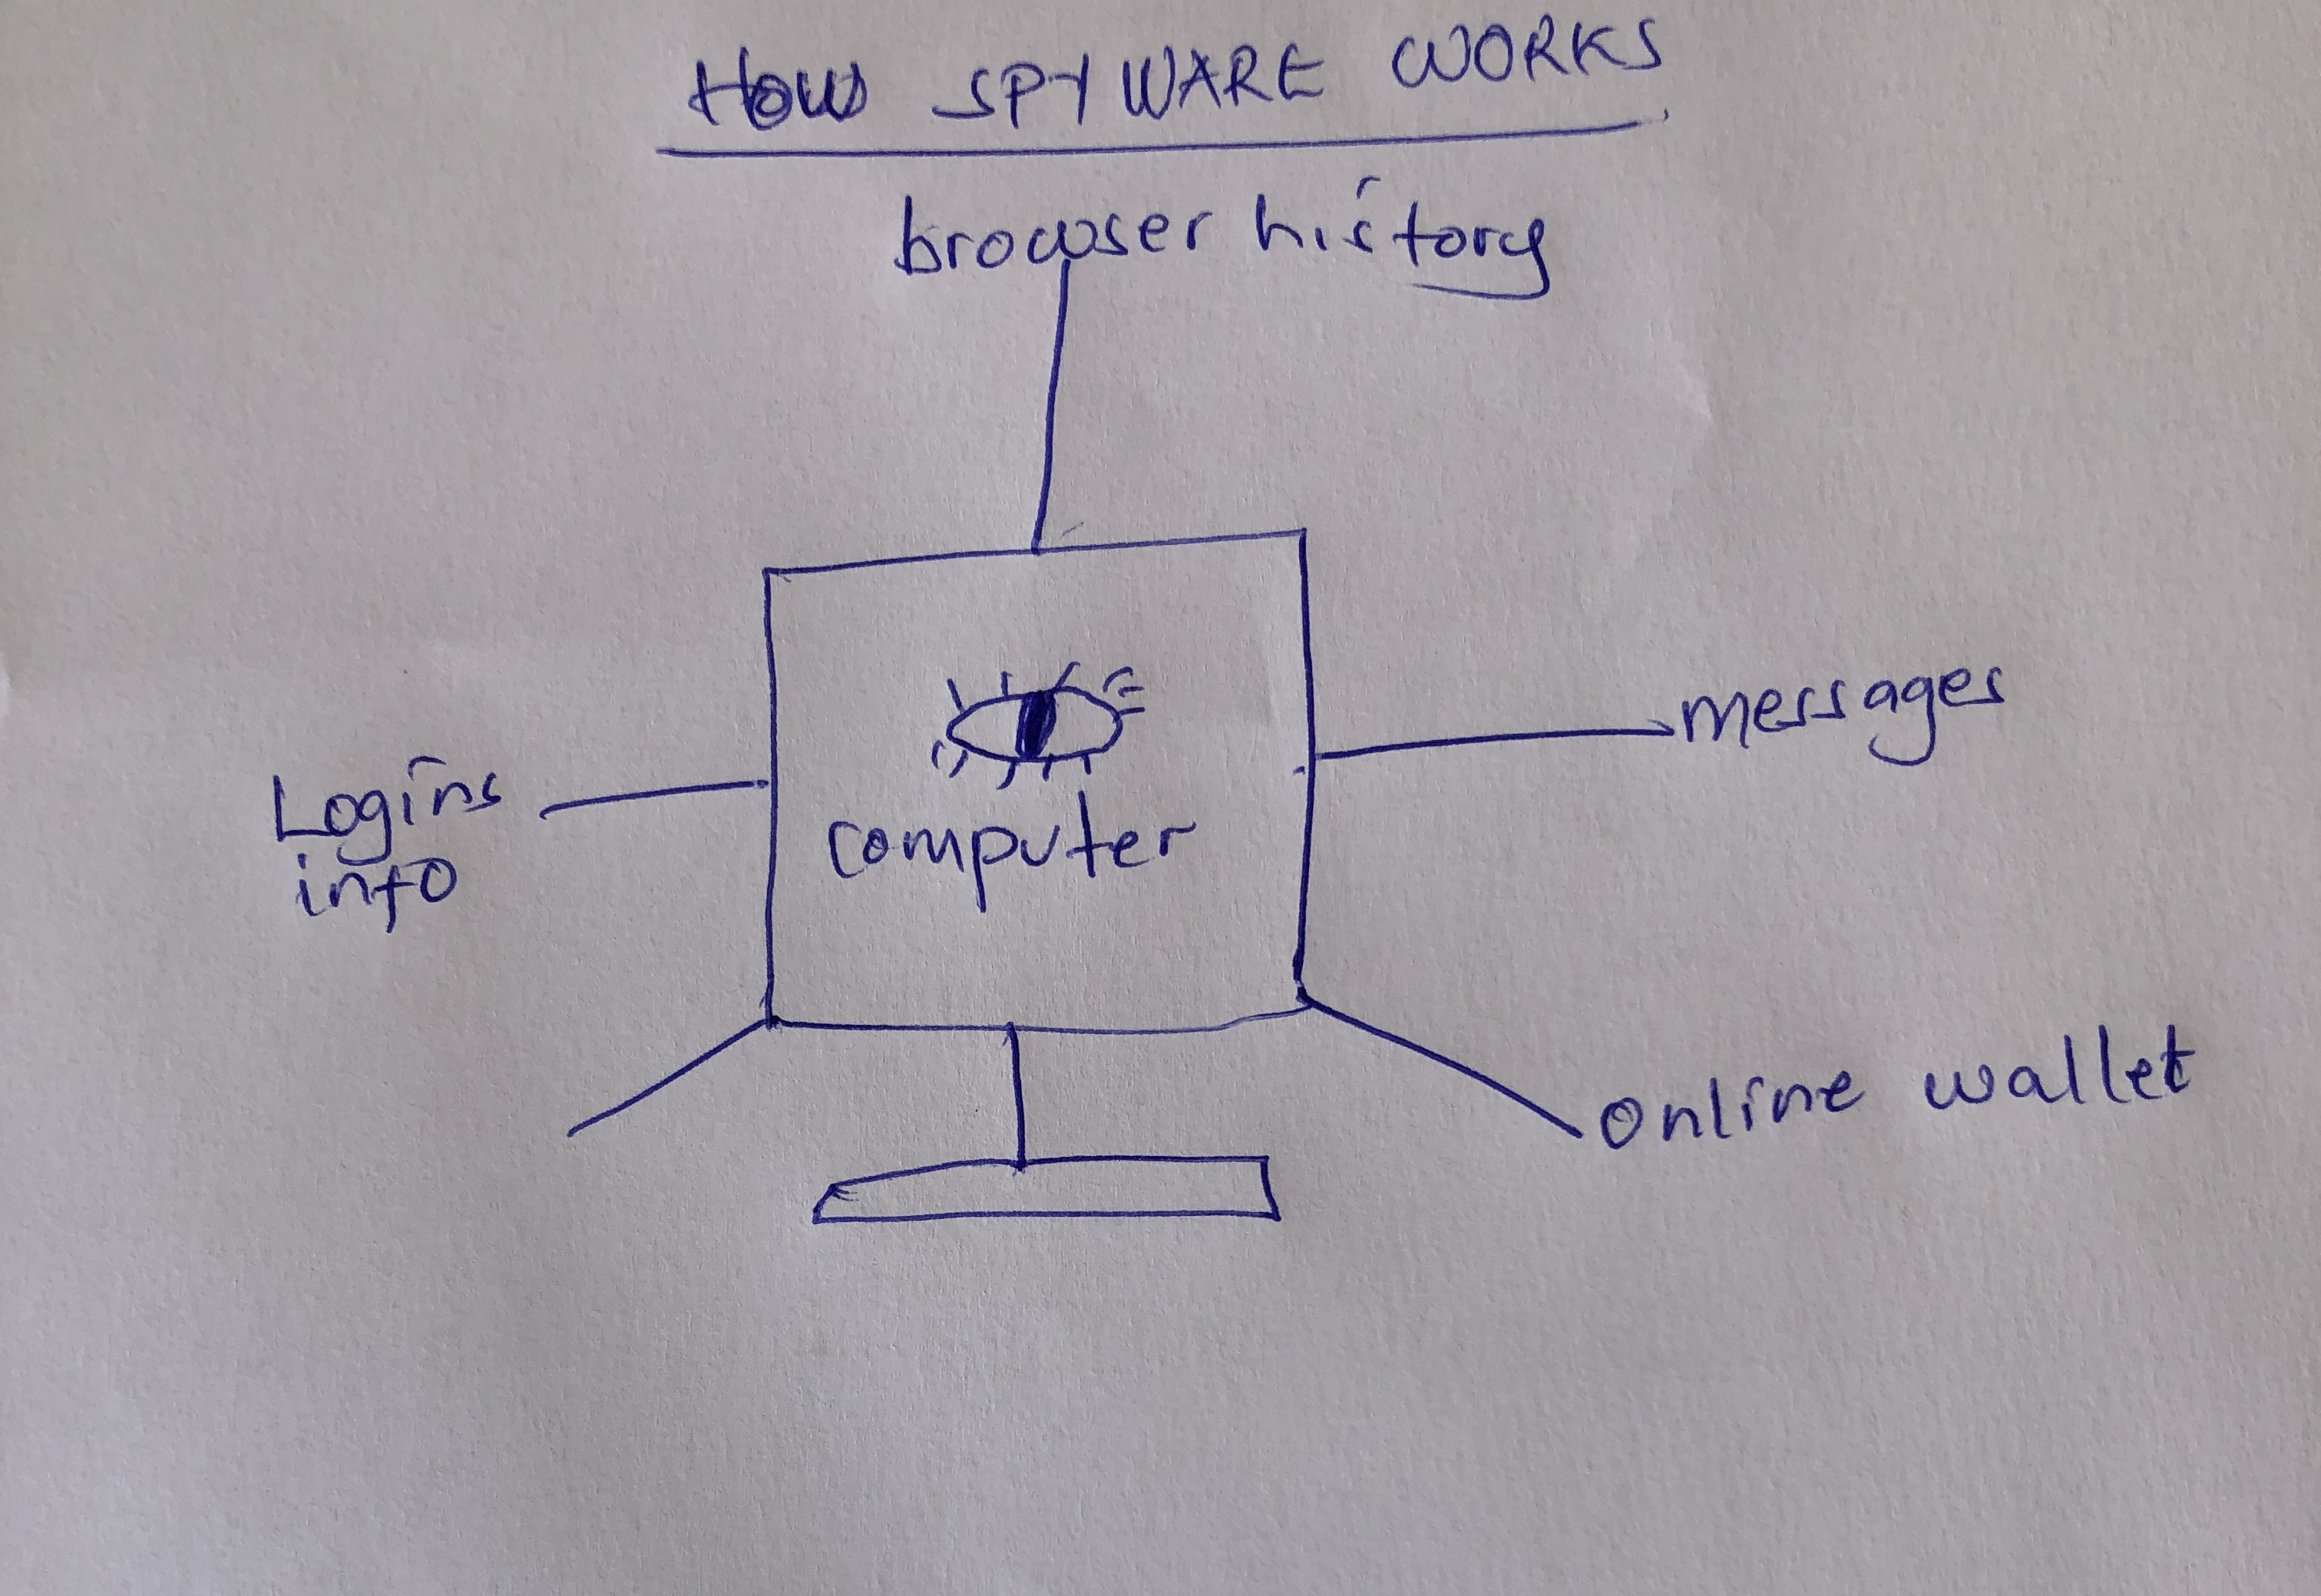 HOW SPYWARE WORKS
browser history
messages
Logins
info
computer
online wallet